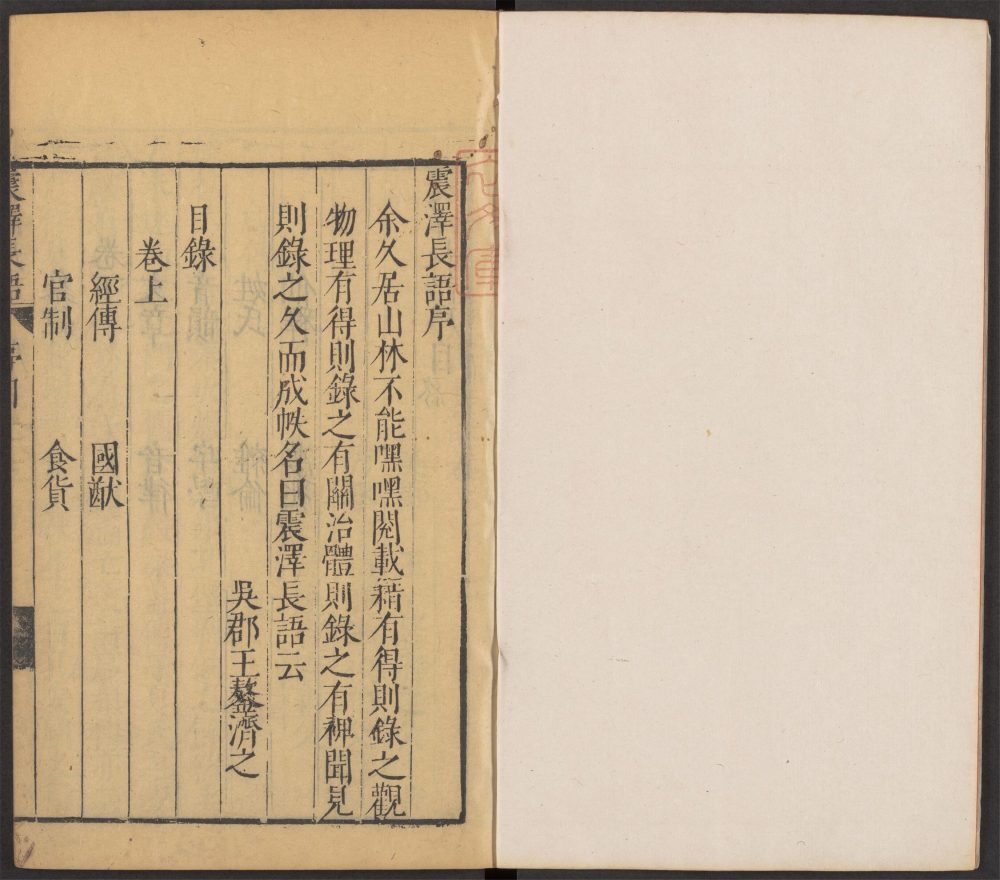 震澤長語序
余久居山林不能嘿嘿閱載籍有得則錄之觀
物理有得則錄之有關治體則錄之有裨聞見
則錄之久而成帙名曰震澤長語云
吳郡王鏊濟之
目錄
卷上
經傳 國猷
官制 食貨
震澤長語 序目